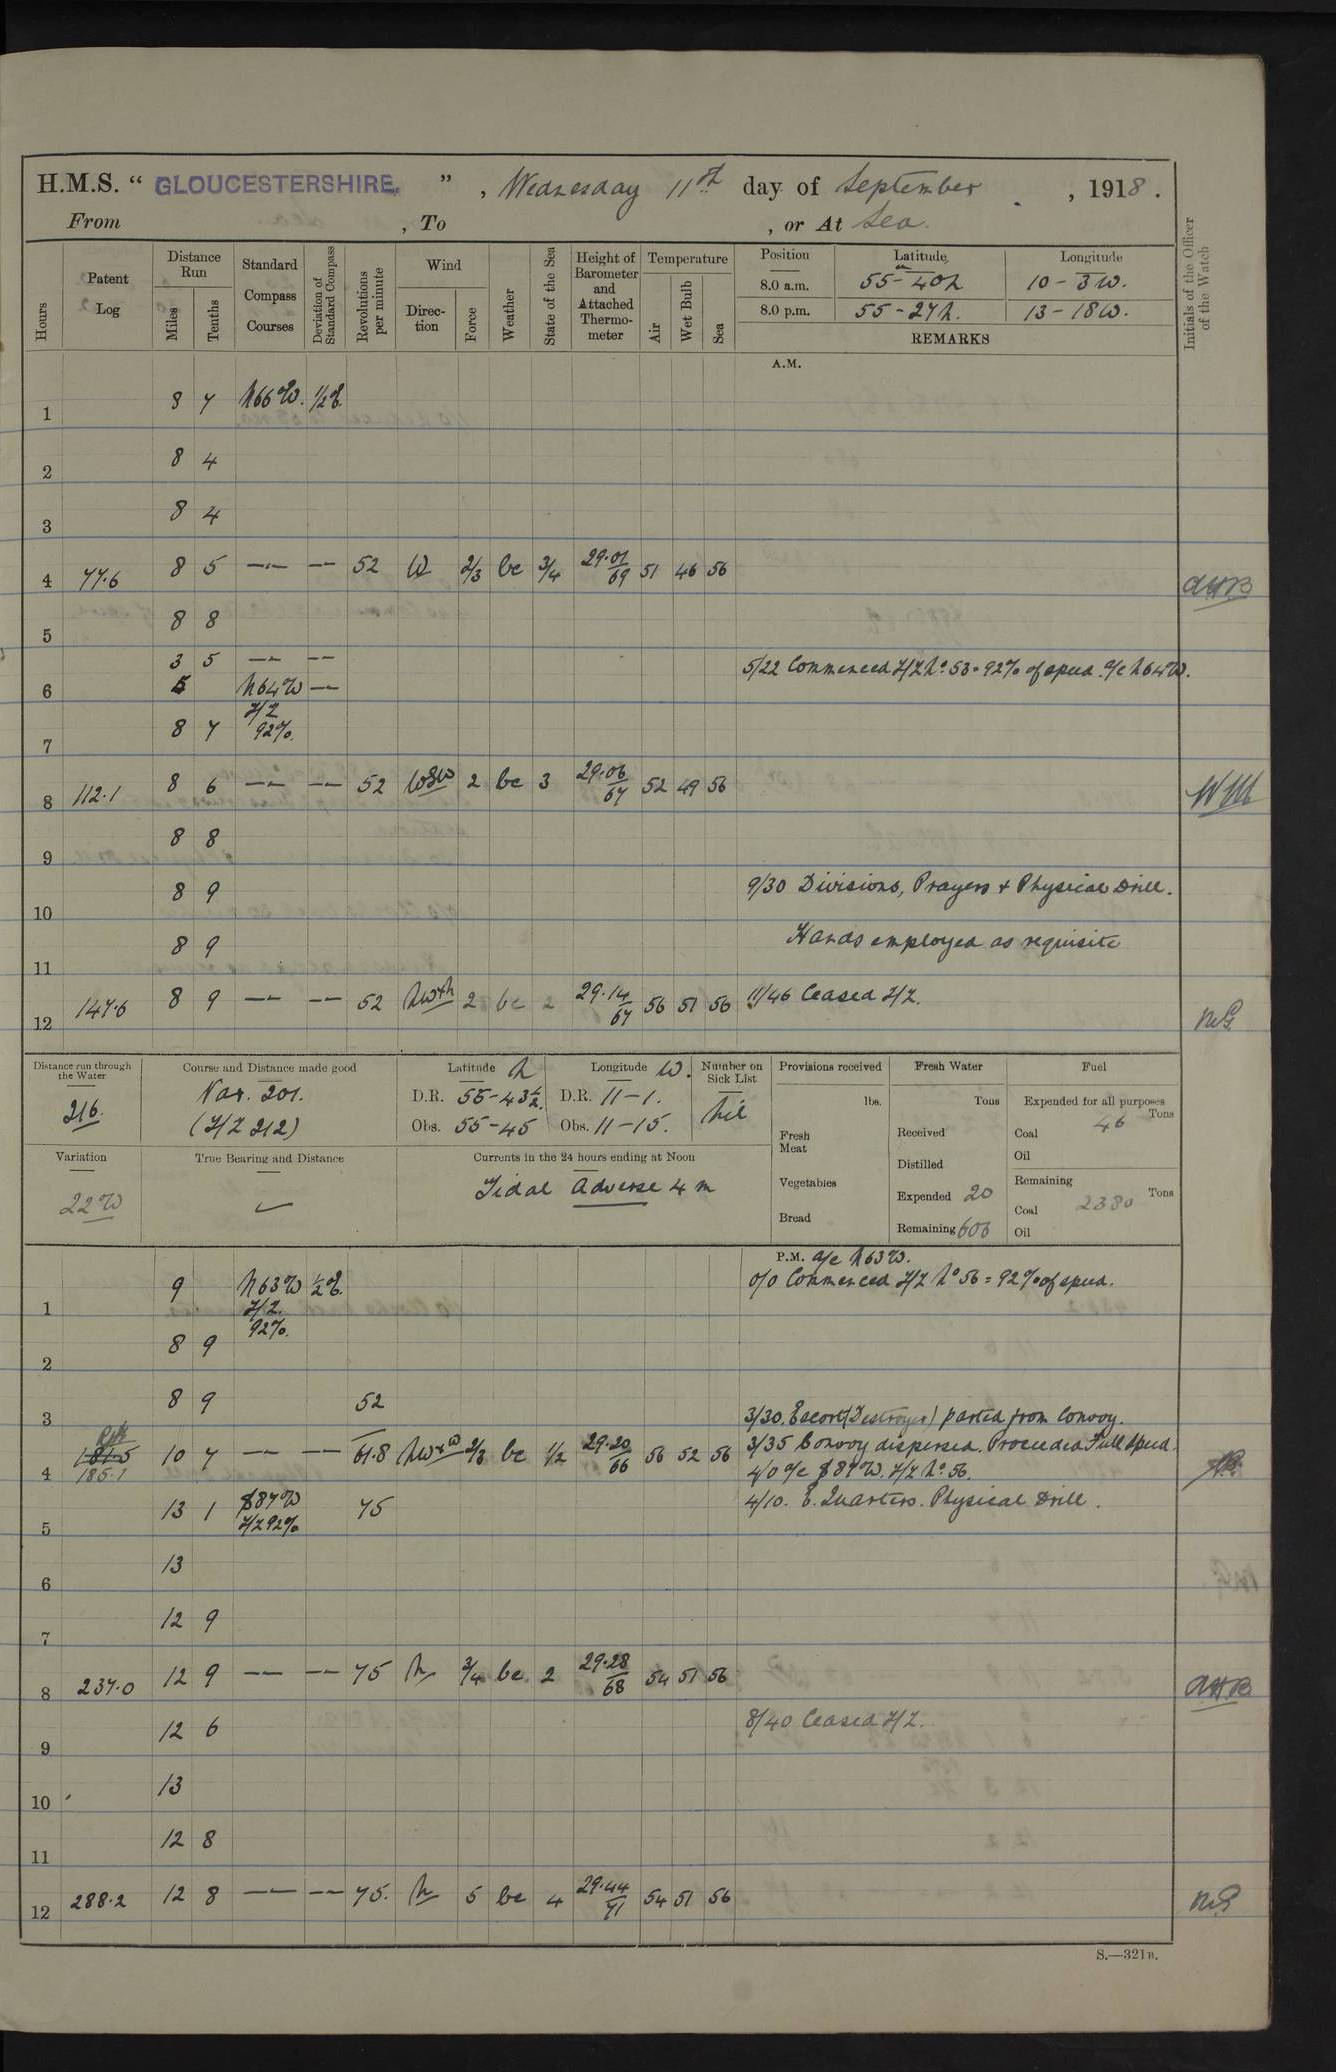 H.M.S. " GLOUCESTERSHIRE. ", Wednesday 11th day of September, 1918.
From , To , or At Sea.
Hours
Patent Log
Distance Run
Miles
Tenths
Standard Compass Courses
Deviation of Standard Compass
Revolutions per minute
Wind
Direction
Force
Weather
State of the Sea
Height of Barometer and Attached Thermometer
Temperature
Air
Wet Bulb
Sea
Position Latitude Longitude
8.0 a.m. 55-40 N 10-3 W.
8.0 p.m. 55-27 N. 13-18 W.
REMARKS
Initials of the Officer of the Watch
A.M.
1 8 7 N66W. 1/2 E.
2 8 4
3 8 4
4 77.6 8 5 -"- -"- 52 W 2/3 bc 3/4 29.01/69 51 46 56 AHB
5 8 8
3 5 -"- -"- 5/22 Commenced Z/Z No. 53 = 92% of speed. a/c N64W.
6 5 N64W -"-
7 8 7 Z/Z 92%.
8 112.1 8 6 -"- -"- 52 WSW 2 bc 3 29.06/67 52 49 56
9 8 8
10 8 9 9/30 Divisions, Prayers + Physical Drill.
11 8 9 Hands employed as requisite
12 147.6 8 9 -"- -"- 52 NWxN 2 bc 2 29.14/67 56 51 56 11/46 Ceased Z/Z.
Distance run through the Water
216.
Course and Distance made good
Nav. 201.
(Z/Z 212)
Latitude N
D.R. 55-43 1/2.
Obs. 55-45
Longitude W.
D.R. 11-1.
Obs. 11-15.
Number on Sick List
Nil
Provisions received
lbs.
Fresh Meat
Vegetables
Bread
Fresh Water
Tons
Received
Distilled
Expended 20
Remaining 606
Fuel
Expended for all purposes
Coal 46 Tons
Oil
Remaining
Coal 2380 Tons
Oil
Variation
22 W
True Bearing and Distance
Currents in the 24 hours ending at Noon
Tidal Adverse 4 m
P.M. a/c N63W.
1 9 N63W 1/2 E. 0/0 Commenced Z/Z No 56 = 92% of speed.
Z/Z.
92%.
2 8 9
3 8 9 52
3/30. Escort (Destroyer) parted from Convoy.
4 181.5 185.1 10 7 -"- -"- 61.8 NWxW 2/3 bc 1/2 29.20/66 56 52 56 3/35 Convoy dispersed. Proceeded Full Speed.
4/0 a/c S87W. Z/Z No 56.
5 13 1 S87W 75 4/10. E. Quarters. Physical Drill.
Z/Z 92%
6 13
7 12 9
8 237.0 12 9 -"- -"- 75 N 3/4 bc. 2 29.28/68 54 51 56 AHB.
9 12 6 8/40 Ceased Z/Z.
10 13
11 12 8
12 288.2 12 8 -"- -"- 75. N 5 bc 4 29.44/71 54 51 56
S.—321B.